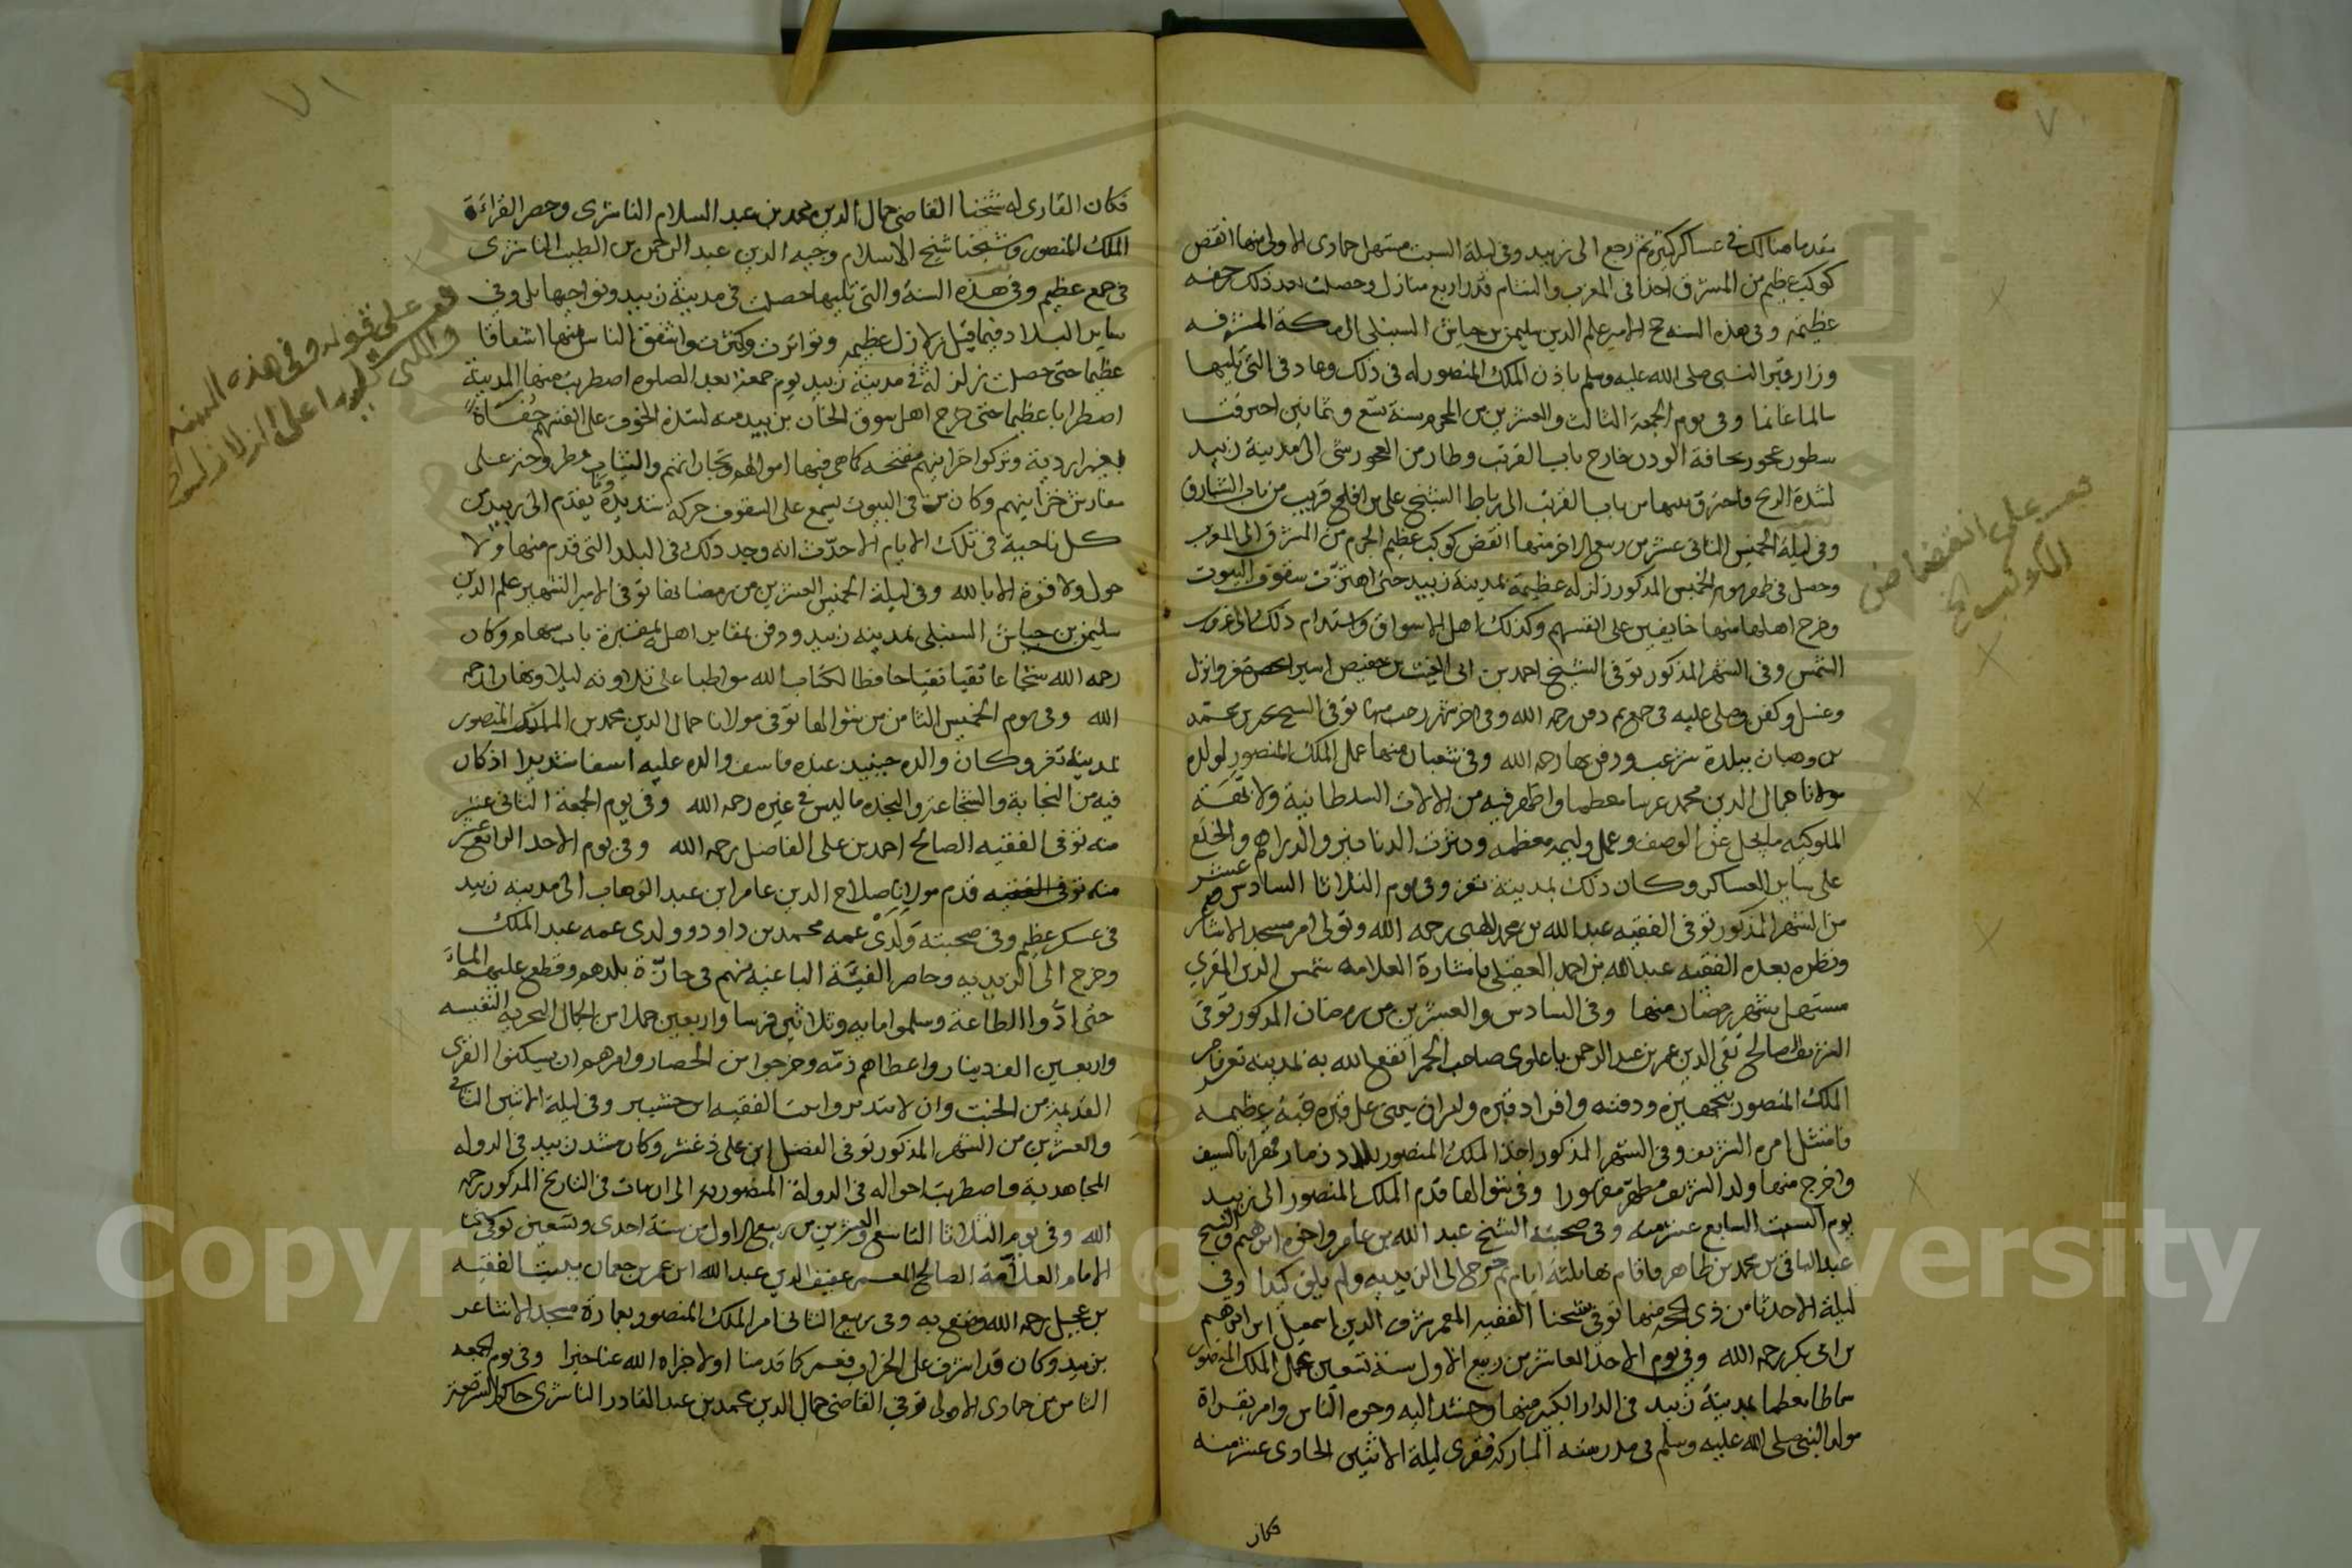 ٧٠
بقدما هنالك فى عساكر كثيرة ثم رجع الى زبيد وفى ليلة السبت مستهل جمادى الاولى منها انقض
كوكب عظيم من المشرق اخذا فى المغرب والشام قدر اربع منازل وحصلت بعد ذلك رجفه
عظيمه وفى هذه السنه حج الامير علم الدين سليمن بن جياش السنبلى الى مكة المشرفه
وزار قبر النبى صلى الله عليه وسلم باذن الملك المنصور له فى ذلك وعاد فى التى تليها
سالما غانما وفى يوم الجمعة الثالث والعشرين من المحرم سنة تسع وثمانين احترقت
سطور عجور بحافة الودن خارج باب القرتب وطار من العجور شى الى مدينة زبيد
لشدة الريح فاحترق بسببها من باب القرتب الى رباط الشيخ على بن افلح قريب من باب الشبارق
وفى ليلة الخميس الثانى عشر من ربيع الاخر منها انقض كوكب عظيم الجرم من المشرق الى المغرب
وحصل فى ظهر يوم الخميس المذكور زلزله عظيمة بمدينة زبيد حتى اهتزت سقوف البيوت
وخرج اهلها منها خايفين على انفسهم وكذلك اهل الاسواق واستدام ذلك الى غروب
الشمس وفى الشهر المذكور توفى الشيخ احمد بن ابى الغيث بن حفيص اسيرا بحصن تعز وانزل
وغسل وكفن وصلى عليه فى جمع ثم دفن رحمه الله وفى اخر شهر رجب منها توفى الشيخ محمد بن محمد
بن وهبان ببلدة شرعب ودفن بها رحمه الله وفى شعبان منها عمل الملك المنصور لولده
مولانا جمال الدين محمد عرسا معظما واظهر فيه من الالات السلطانية والابهة
الملوكيه ما يجل عن الوصف وعمل وليمه معظمه ونثرت الدنانير والدراهم والخلع
على ساير العساكر وكان ذلك بمدينة تعز وفى يوم الثلاثا السادس عشر
من الشهر المذكور توفى الفقيه عبد الله بن محمد الهبى رحمه الله وتولى امر مسجد الاشاعر
ونظره بعده الفقيه عبد الله بن احمد العقيلى باشارة العلامه شمس الدين المقرى
مستهل شهر رمضان منها وفى السادس والعشرين من رمضان المذكور توفى
الشريف الصالح تقى الدين عمر بن عبد الرحمن باعلوى صاحب الحمرا نفع الله به بمدينة تعز فامر
الملك المنصور بتجهيزه ودفنه وافراد قبره وان يبنى على قبره قبة عظيمه
فامتثل امره الشريف وفى الشهر المذكور اخذ الملك المنصور بلاد ذمار قهرا بالسيف
واخرج منها ولد الشريف مطهر مقهورا وفى شوالها قدم الملك المنصور الى زبيد
يوم السبت السابع عشر منه وفى صحبته الشيخ عبد الله بن عامر واخوه ابرهيم والشيخ
عبد الباقى بن محمد بن طاهر فاقام بها ثلثة ايام ثم خرج الى الزيديه ولم يلق كيدا وفى
ليلة الاحد ثامن ذى الحجه منها توفى شيخنا الفقيه المعمر شرف الدين اسمعيل ابن ابرهيم
بن ابى بكر رحمه الله وفى يوم الاحد العاشر من ربيع الاول سنة تسعين عمل الملك المنصور
سماطا معظما بمدينة زبيد فى الدار الكبير منها وحشد اليه وجوه الناس وامر بقراة
مولد النبى صلى الله عليه وسلم فى مدرسته المباركه فقرى ليلة الاثنين الحادى عشر منه
فكان
قف على انقضاض
الكوكب الخ
٧١
فكان القارى له شيخنا القاضى جمال الدين محمد بن عبد السلام الناشرى وحضر القراءة
الملك المنصور وشيخنا شيخ الاسلام وجيه الدين عبد الرحمن بن الطيب الناشرى
فى جمع عظيم وفى هذه السنة والتى تليها حصلت فى مدينة زبيد ونواحيها بل وفى
ساير البلاد فيما قيل زلازل عظيمه وتواترت وكثرت واشفق الناس منها اشفاقا
عظيما حتى حصلت زلزلة فى مدينة زبيد يوم جمعة بعد الصلوة اضطربت منها المدينة
اضطرابا عظيما حتى خرج اهل سوق الخان بزبيد منه لشدة الخوف على انفسهم حفاة
بغير اردية وتركوا خزاينهم مفتحه كما هى فيها اموالهم وتجاراتهم والثياب مطروحة على
مفارش خزاينهم وكان من فى البيوت يسمع على السقوف حركه شديدة وما يقدم الى زبيد من
كل ناحية فى تلك الايام الا حدث انه وجد ذلك فى البلد التى قدم منها ولا
حول ولا قوة الا بالله وفى ليلة الخميس العشرين من رمضانها توفى الامير الشهير علم الدين
سليمن بن جياش السنبلى بمدينه زبيد ودفن بمقابر اهله بمقبرة باب سهام وكان
رحمه الله شجاعا تقيا نقيا حافظا لكتاب الله مواظبا على تلاوته ليلا ونهارا رحمه
الله وفى يوم الخميس الثامن من شوالها توفى مولانا جمال الدين محمد بن الملك المنصور
بمدينة تعز وكان والده حينيد عنده فاسف والده عليه اسفا شديدا اذ كان
فيه من النجابة والشجاعة والنجده ما ليس فى غيره رحمه الله وفى يوم الجمعة الثانى عشر
منه توفى الفقيه الصالح احمد بن على الفاضل رحمه الله وفى يوم الاحد الرابع عشر
منه توفى الفقيه قدم مولانا صلاح الدين عامر ابن عبد الوهاب الى مدينه زبيد
فى عسكر عظيم وفى صحبته ولدى عمه محمد بن داود وولدى عمه عبد الملك
وخرج الى الزيديه وحاصر الفئة الباغية منهم فى حازة بلدهم وقطع عليهم الماء
حتى ادوا الطاعة وسلموا مايه وثلاثين فرسا واربعين حملا من الجمال البحريه النفيسه
واربعين الف دينار واعطاهم ذمه وخرجوا من الحصار وامرهم ان يسكنوا القرى
القديمة من الخبت وان لا يتديروا بيت الفقيه ابن حشيبر وفى ليلة الاثنين الثانى
والعشرين من الشهر المذكور توفى الفضل ابن على ذعش وكان مشد زبيد فى الدوله
المجاهدية واضطربت احواله فى الدولة المنصوريه الى ان مات فى التاريخ المذكور رحمه
الله وفى يوم الثلاثا التاسع والعشرين من ربيع الاول من سنة احدى وتسعين توفى
الامام العلامة الصالح المعمر عفيف الدين عبد الله ابن عمر بن جعمان ببيت الفقيه
بن عجيل رحمه الله ونفع به وفى ربيع الثانى امر الملك المنصور بعمارة مسجد الاشاعر
بزبيد وكان قد اشرف على الخراب فعمر كما قدمنا اولا جزاه الله عنا خيرا وفى يوم الجمعه
الثامن من جمادى الاولى توفى القاضى جمال الدين محمد بن عبد القادر الناشرى حاكم الشرع بتعز
قف على قوله وفى هذه السنه
والتى تليها على الزلازل
Copyright © King Saud University